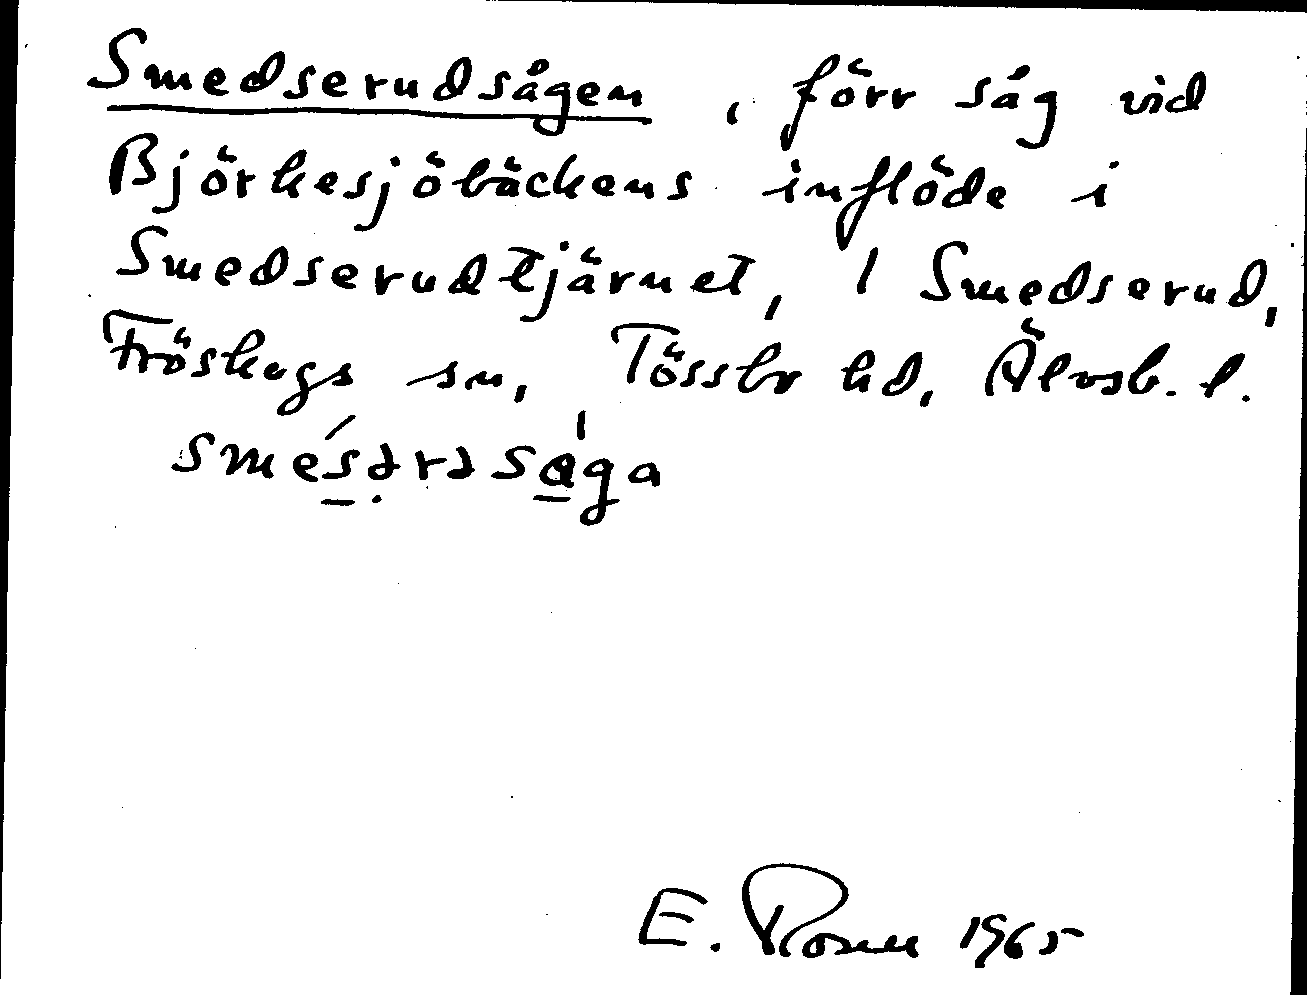 Smedserudsågen, förr såg vid
Björkesjöbäckens inflöde i
Smedserudtjärnet, 1 Smedserud,
Fröskogs sn, Tössbo hd, Älvsb. l.
E. Rosén 1965